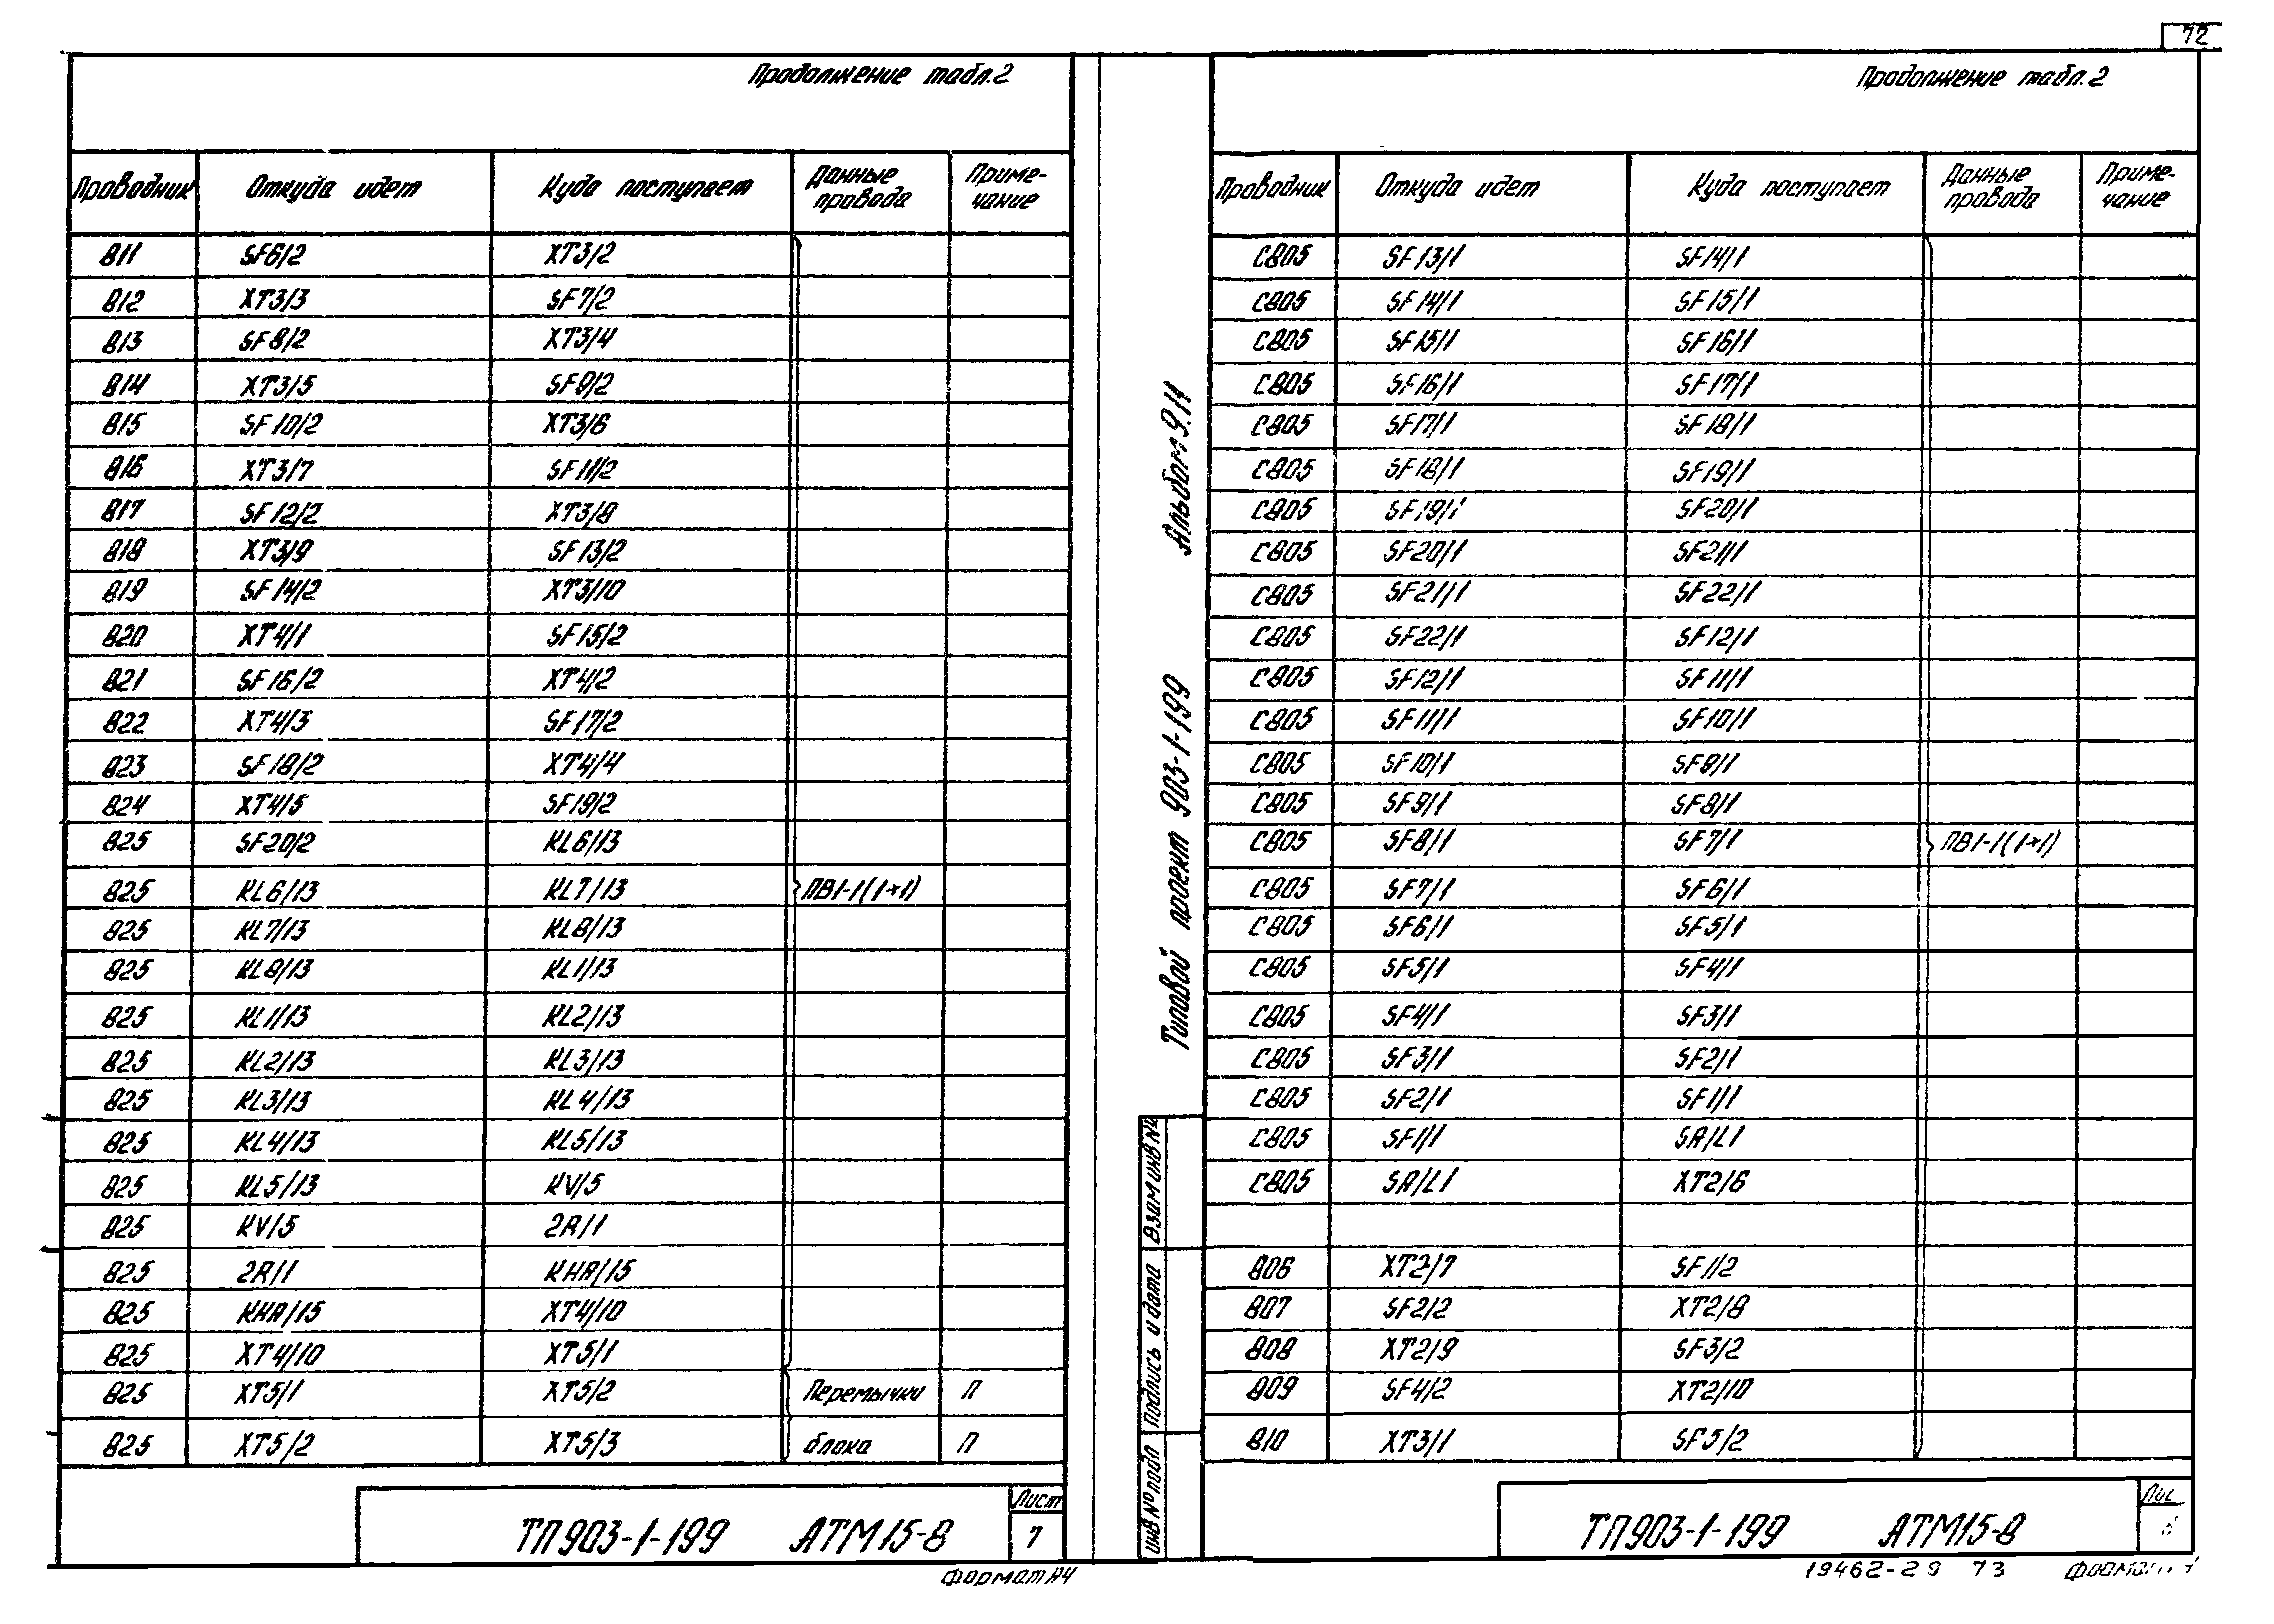 72
Продолжение табл.2
Проводник Откуда идет Куда поступает Данные провода Примечание
811 SF6/2 XT3/2
812 XT3/3 SF7/2
813 SF8/2 XT3/4
814 XT3/5 SF9/2
815 SF10/2 XT3/6
816 XT3/7 SF11/2
817 SF12/2 XT3/8
818 XT3/9 SF13/2
819 SF14/2 XT3/10
820 XT4/1 SF15/2
821 SF16/2 XT4/2
822 XT4/3 SF17/2
823 SF18/2 XT4/4
824 XT4/5 SF19/2
825 SF20/2 KL6/13
825 KL6/13 KL7/13 ПВ1-1(1×1)
825 KL7/13 KL8/13
825 KL8/13 KL1/13
825 KL1/13 KL2/13
825 KL2/13 KL3/13
825 KL3/13 KL4/13
825 KL4/13 KL5/13
825 KL5/13 KV/5
825 KV/5 2R/1
825 2R/1 KHA/15
825 KHA/15 XT4/10
825 XT4/10 XT5/1
825 XT5/1 XT5/2 Перемычки П
825 XT5/2 XT5/3 блока П
ТП903-1-199 АТМ15-8 Лист 7
Формат А4
Альбом 9.11
Типовой проект 903-1-199
Взам инв №
Подпись и дата
Инв № подл
Продолжение табл.2
Проводник Откуда идет Куда поступает Данные провода Примечание
С805 SF13/1 SF14/1
С805 SF14/1 SF15/1
С805 SF15/1 SF16/1
С805 SF16/1 SF17/1
С805 SF17/1 SF18/1
С805 SF18/1 SF19/1
С805 SF19/1 SF20/1
С805 SF20/1 SF21/1
С805 SF21/1 SF22/1
С805 SF22/1 SF12/1
С805 SF12/1 SF11/1
С805 SF11/1 SF10/1
С805 SF10/1 SF9/1
С805 SF9/1 SF8/1
С805 SF8/1 SF7/1 ПВ1-1(1×1)
С805 SF7/1 SF6/1
С805 SF6/1 SF5/1
С805 SF5/1 SF4/1
С805 SF4/1 SF3/1
С805 SF3/1 SF2/1
С805 SF2/1 SF1/1
С805 SF1/1 SA/L1
С805 SA/L1 XT2/6
806 XT2/7 SF1/2
807 SF2/2 XT2/8
808 XT2/9 SF3/2
809 SF4/2 XT2/10
810 XT3/1 SF5/2
ТП903-1-199 АТМ15-8
19462-29 73